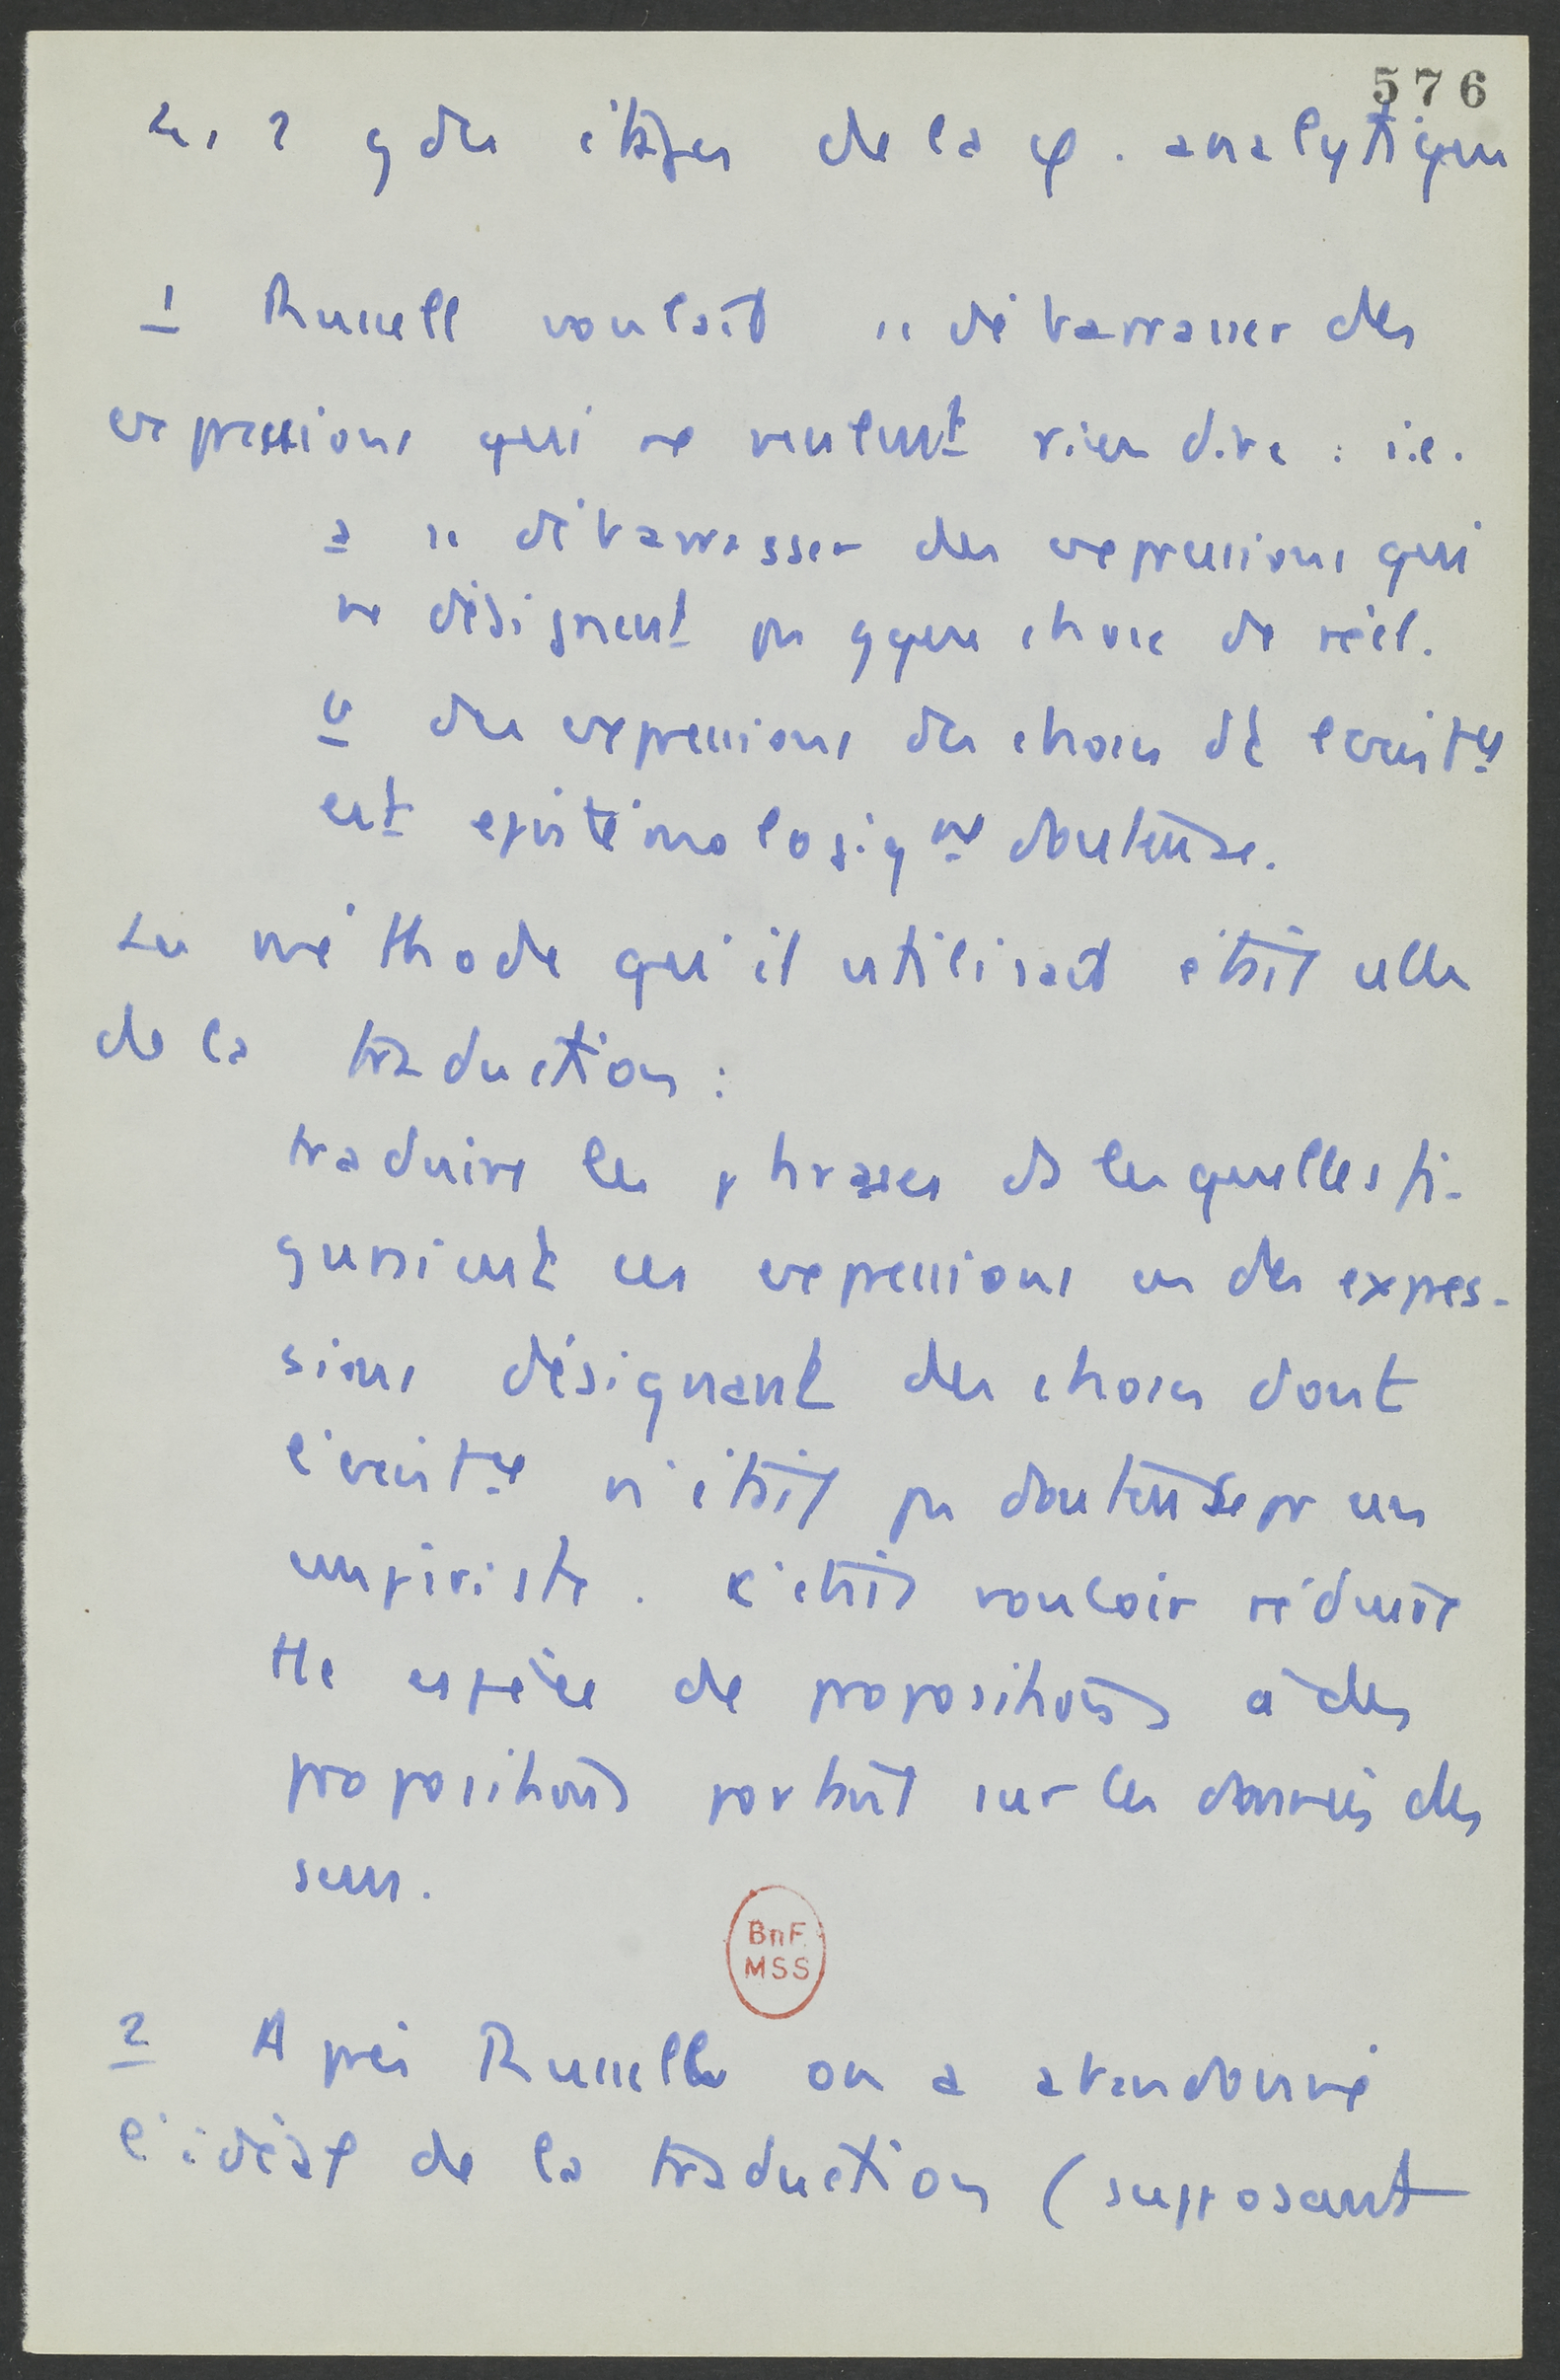 576
Les 2 gdes étapes de la φ. analytique
1 Russell voulait se débarrasser des
expressions qui ne veulent rien dire : i.e.
a se débarrasser des expressions qui
ne désignent pas qque chose de réel.
b des expressions des choses dt l'exist^ce
est epistémologiq^nt douteuse.
La méthode qu'il utilisait était celle
de la traduction :
traduire les phrases ds lesquelles fi-
guraient ces expressions en des expres-
sions désignant des choses dont
l'exist^ce n'était pas douteuse pr un
empiriste. C'était vouloir réduire
tte espèce de propositions à des
propositions portant sur les données des
sens.
BnF
MSS
2 Après Russell on a abandonné
l'idéal de la traduction (supposant